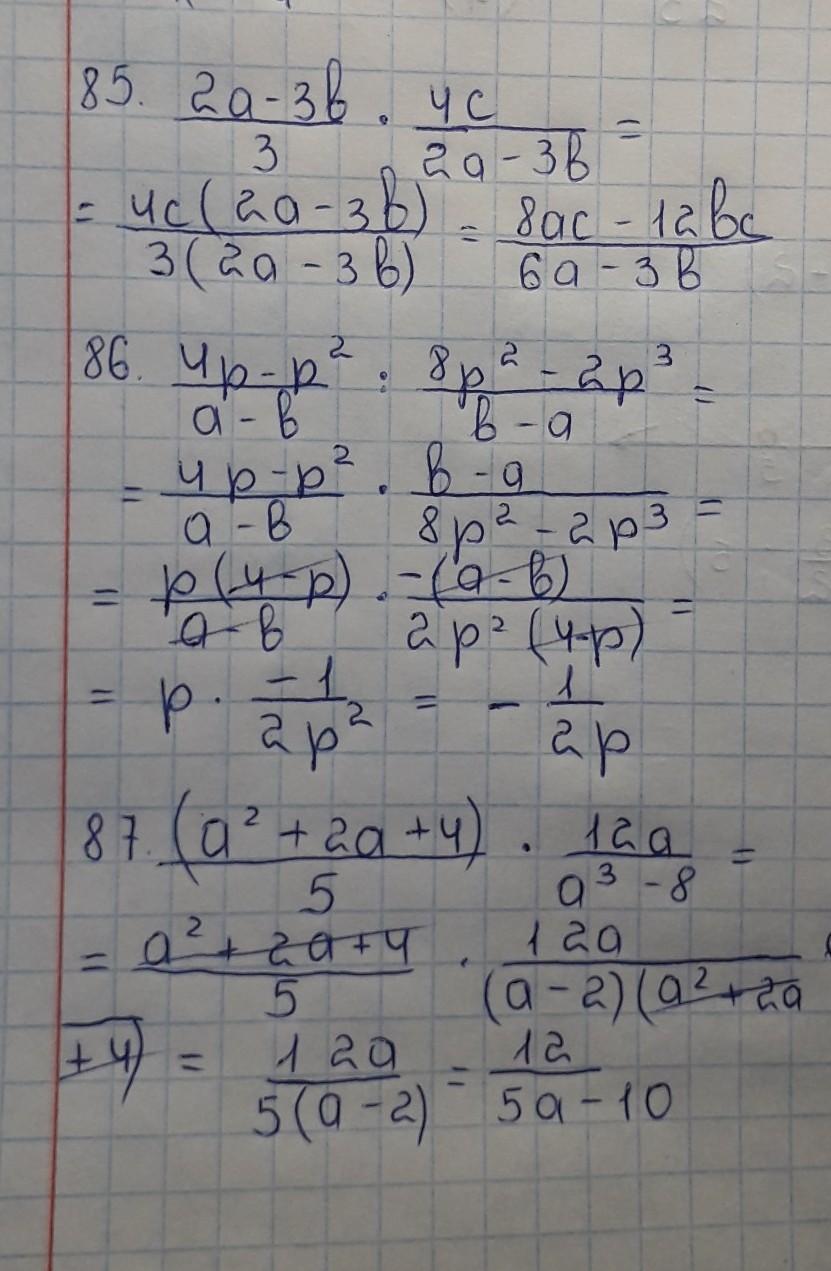 85. (2a-3b)/3 · 4c/(2a-3b) =
= 4c(2a-3b)/3(2a-3b) = (8ac-12bc)/(6a-3b)
86. (4p-p²)/(a-b) : (8p²-2p³)/(b-a) =
= (4p-p²)/(a-b) · (b-a)/(8p²-2p³) =
= p(4-p)/(a-b) · -(a-b)/2p²(4-p) =
= p · -1/2p² = - 1/2p
87. (a²+2a+4)/5 · 12a/(a³-8) =
= (a²+2a+4)/5 · 12a/(a-2)(a²+2a
+4) = 12a/5(a-2) = 12/(5a-10)